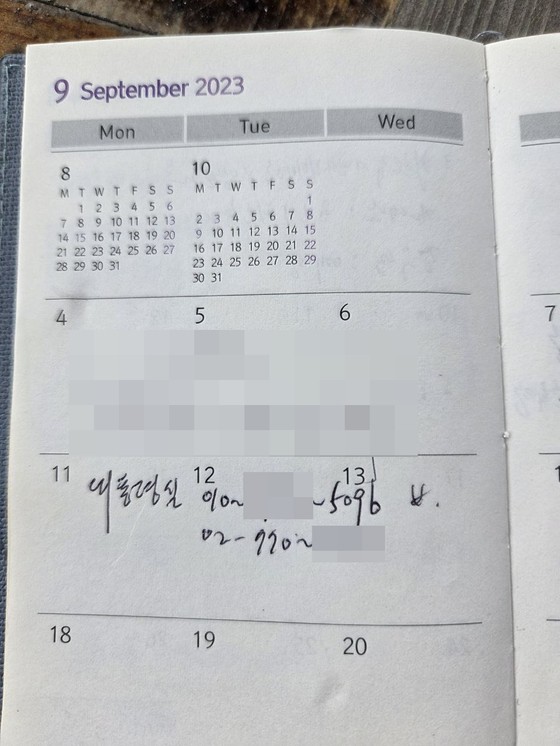 9 September 2023
Mon Tue Wed
8
M T W T F S S
1 2 3 4 5 6
7 8 9 10 11 12 13
14 15 16 17 18 19 20
21 22 23 24 25 26 27
28 29 30 31
10
M T W T F S S
1
2 3 4 5 6 7 8
9 10 11 12 13 14 15
16 17 18 19 20 21 22
23 24 25 26 27 28 29
30 31
4 5 6 7
11 12 13 1
대통령실 010~ ~5096
02-770~
18 19 20